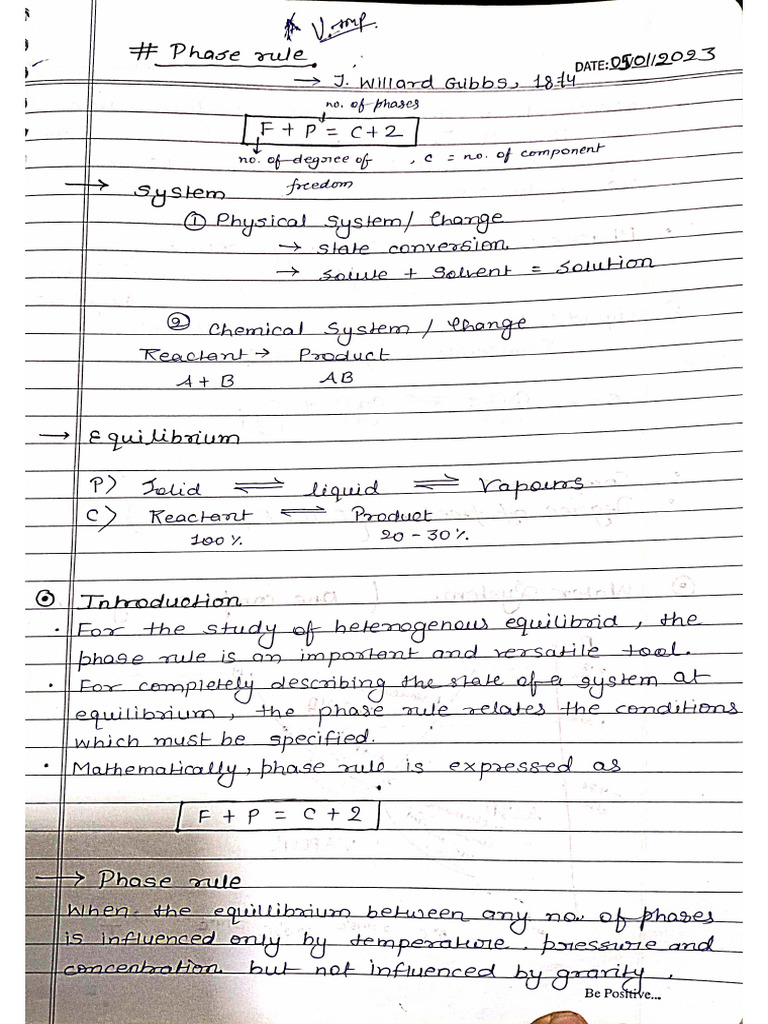 V. Imp.
# Phase rule.
DATE: 05/01/2023
→ J. Willard Gibbs, 1874
no. of phases
F + P = C + 2
no. of degree of freedom , C = no. of component
→ System
① Physical System / Change
→ State conversion.
→ Solute + Solvent = Solution
② Chemical System / Change
Reactant → Product
A + B AB
→ Equilibrium
P) Solid ⇌ liquid ⇌ Vapours
C) Reactant ⇌ Product
100 % 20 - 30 %
⊙ Introduction
· For the study of heterogenous equilibrid, the
phase rule is an important and versatile tool.
· For completely describing the state of a system at
equilibrium, the phase rule relates the conditions
which must be specified.
· Mathematically, phase rule is expressed as
F + P = C + 2
→ Phase rule
When the equillibrium between any no. of phases
is influenced only by temperature, pressure and
concentration but not influenced by gravity.
Be Positive...